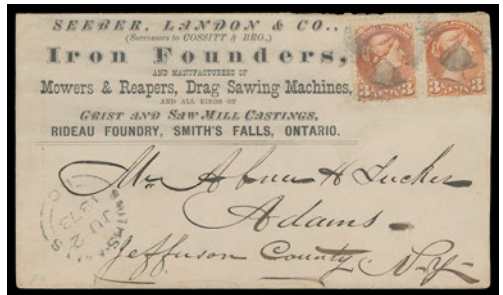 SEEBER, LANDON & CO.,
(Successors to COSSITT & BRO.,)
Iron Founders,
AND MANUFACTURERS OF
Mowers & Reapers, Drag Sawing Machines,
AND ALL KINDS OF
GRIST AND SAW-MILL CASTINGS,
RIDEAU FOUNDRY, SMITH'S FALLS, ONTARIO.
3 CENTS 3
3 CENTS 3
Mr Abner H Tucker
Adams
Jefferson County
N.Y.
SMITHS
JU 2
1873